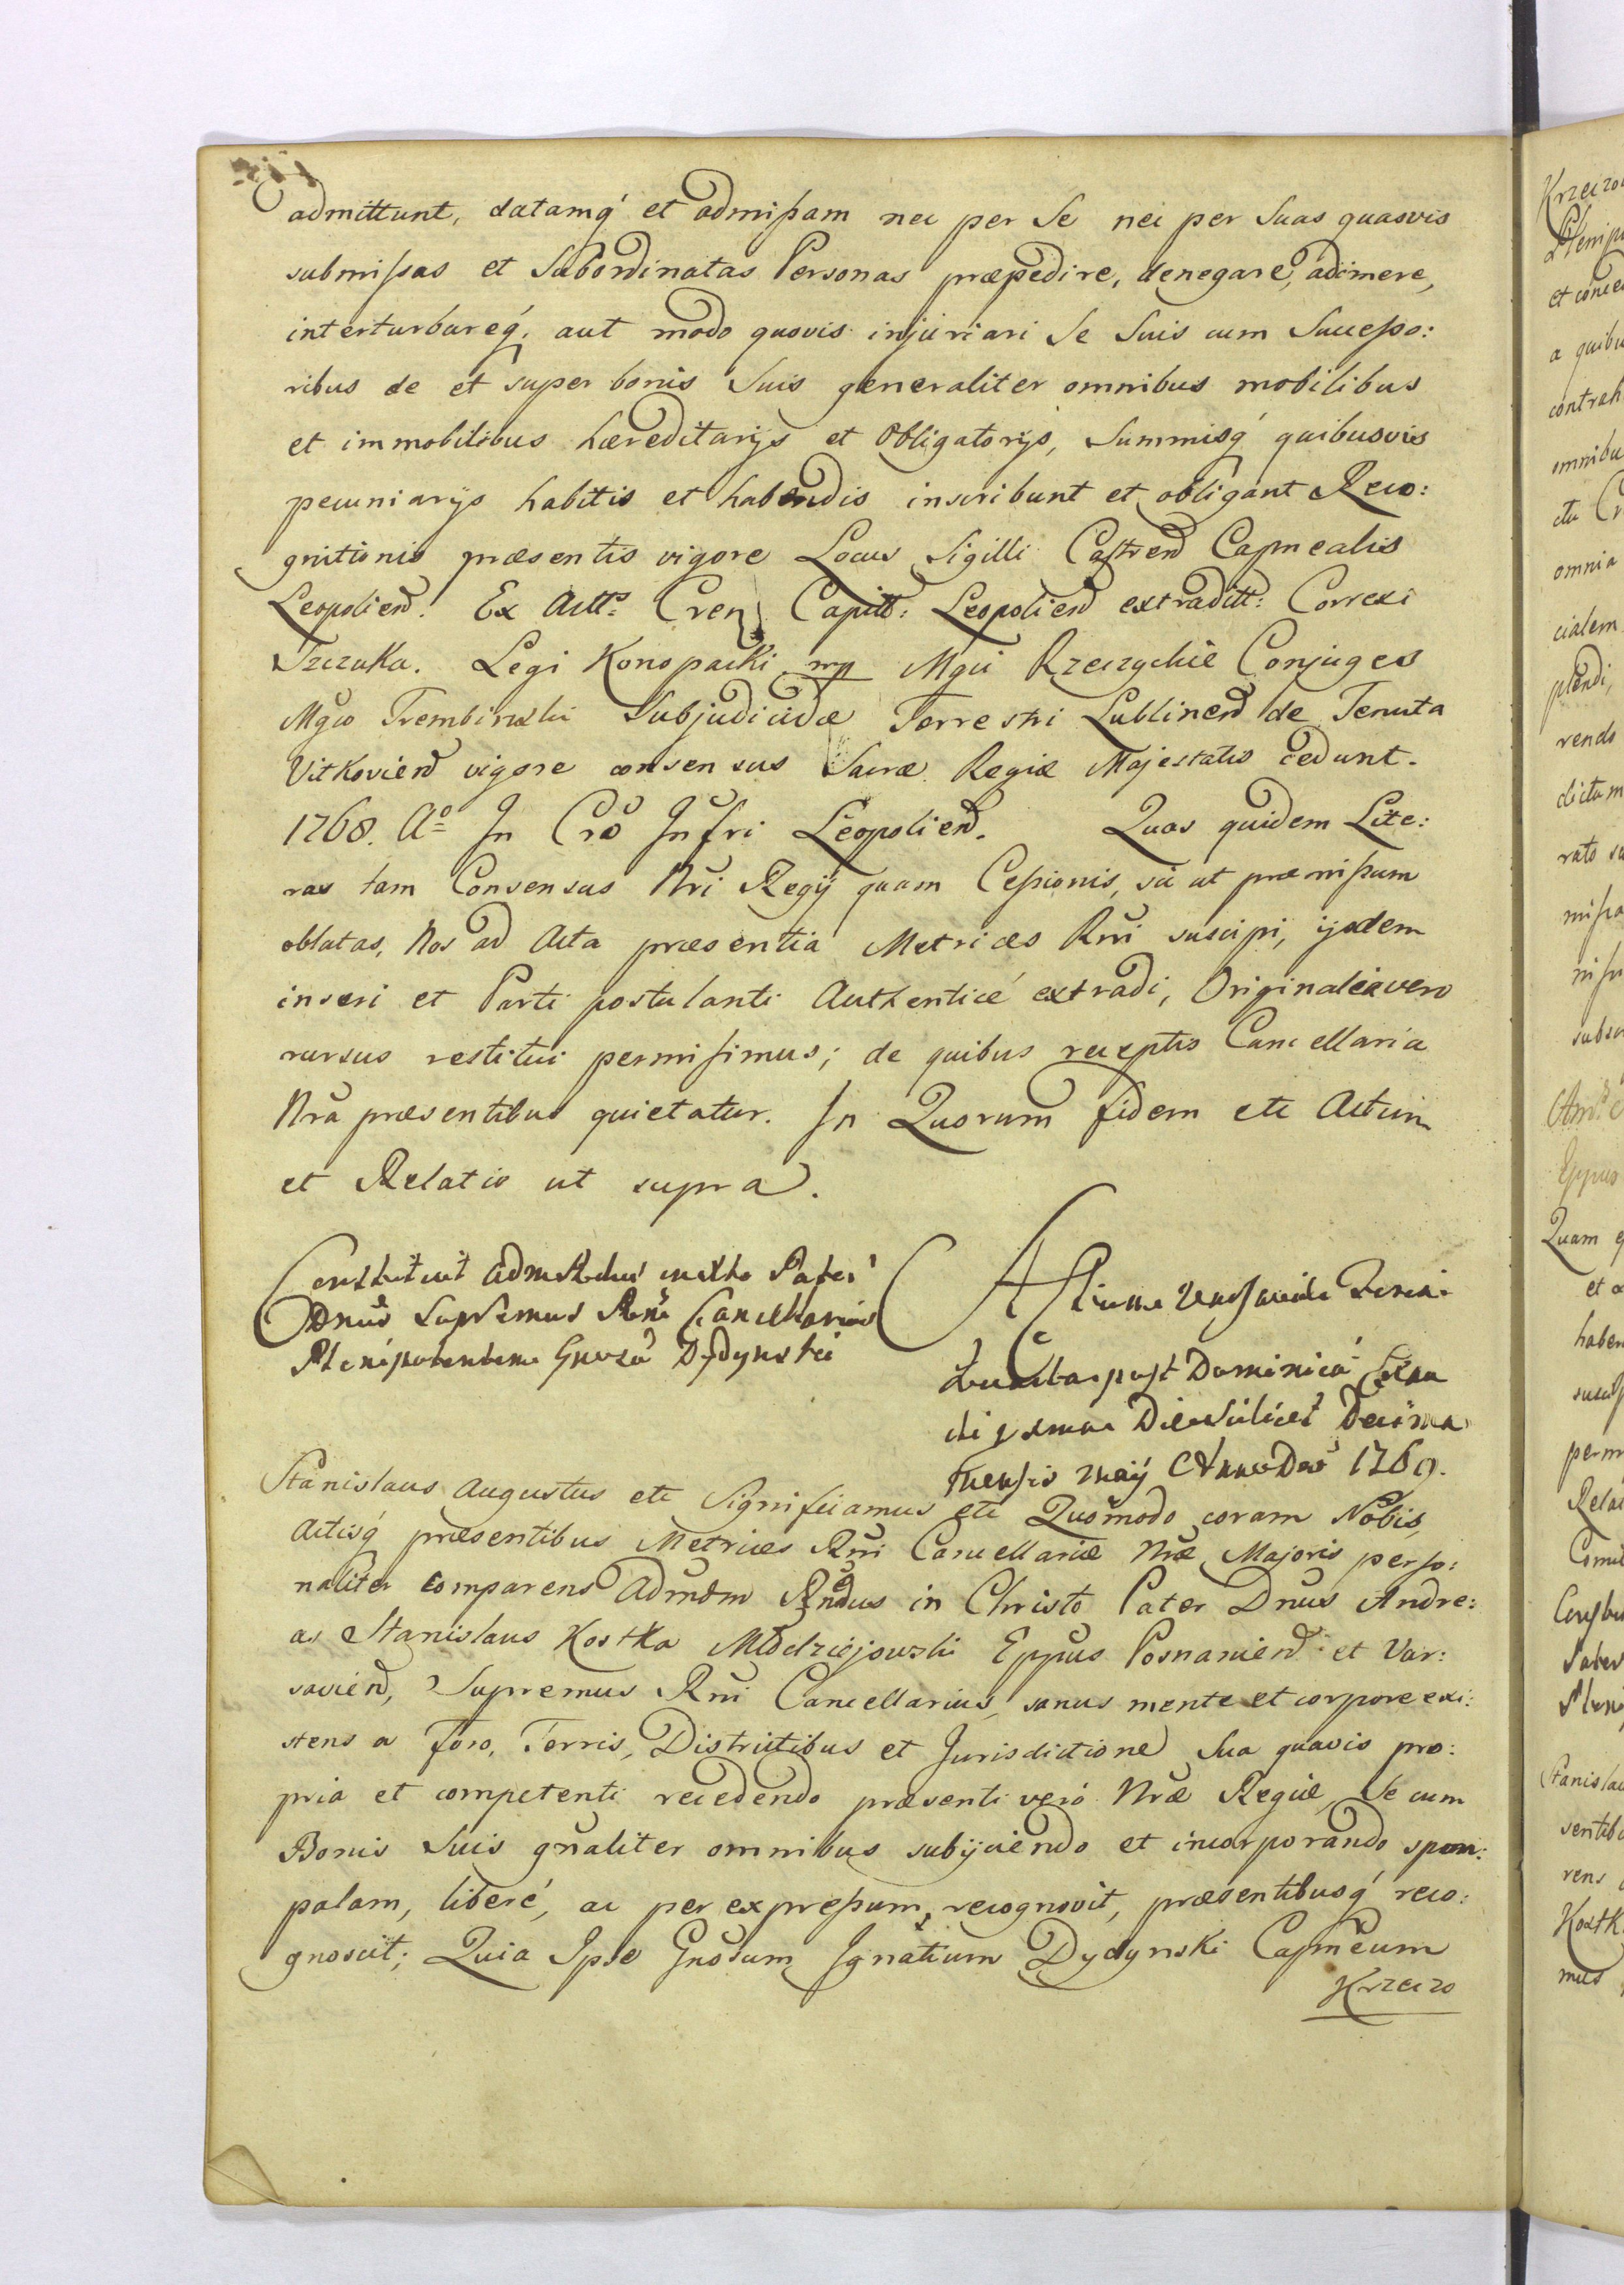 admittunt, datamq́ et admißam nec per Se nec per Suas quasvis
submißas et Subordinatas Personas præpedire, denegare, adimere,
interturbareq́, aut modo quovis injuriari Se Suis cum Succeßo:
ribus de et super bonis Suis generaliter omnibus mobilibus
et immobilibus hæreditarijs et Obligatorijs, Summisq́ quibusvis
pecuniarijs habitis et habendis inscribunt et obligant Reco:
gnitionis præsentis vigore Locus Sigilli Castren Capnealis
Leopolien. Ex Actis Cren Capitt: Leopolien extraditt: Correxi
Tzczuka. Legi Konopacki mp Mgci Rzeczyckie Conjuges
Mgco Trembinski Subjudicidæ Terrestri Lublinen de Tenuta
Vitkovien vigore consensus Sacræ Regiæ Majestatis cedunt.
1768. Aº In Cro Infri Leopolien. Quas quidem Lite:
ras tam Consensus Nri Regij quam Ceßionis, sic ut præmißum
oblatas, Nos ad Acta præsentia Metrices Rni suscipi, ijsdem
inseri et Parti postulanti Authenticé extradi, Originalia vero
rursus restitui permisimus; de quibus receptis Cancellaria
Nra præsentibus quietatur. In Quorum fidem etc Actum
et Relatio ut supra.
Constituit Adm Rndus in Xto Pater
Dnus Supremus Rni Cancellarius
Plenipotentem Gnosũ Dydynski
Actum Varsaviæ Feria
quarta post Dominicã Exau
di proxima Die Scilicet Decima
Mensis Maij Anno Dni 1769.
Stanislaus Augustus etc Significamus etc Quomodo coram Nobis,
Actisq́ præsentibus Metrices Rni Cancellariæ Nræ Majoris perso:
naliter comparens Admdm Rndus in Christo Pater Dnus Andre:
as Stanislaus Kostka Młodziejowski Eppus Posnanien et Var:
savien, Supremus Rni Cancellarius, sanus mente et corpore exi:
stens a foro, Terris, Districtibus et Jurisdictione Sua quavis pro:
pria et competenti recedendo præsenti veró Nræ Regiæ, Se cum
Bonis Suis gnaliter omnibus subijciendo et incorporando spon:
palam, liberé, ac per expreßum, recognovit, præsentibusq́ reco:
gnoscit; Quia Ipse Gnosum Ignatium Dydynski Capneum
Krzeczo